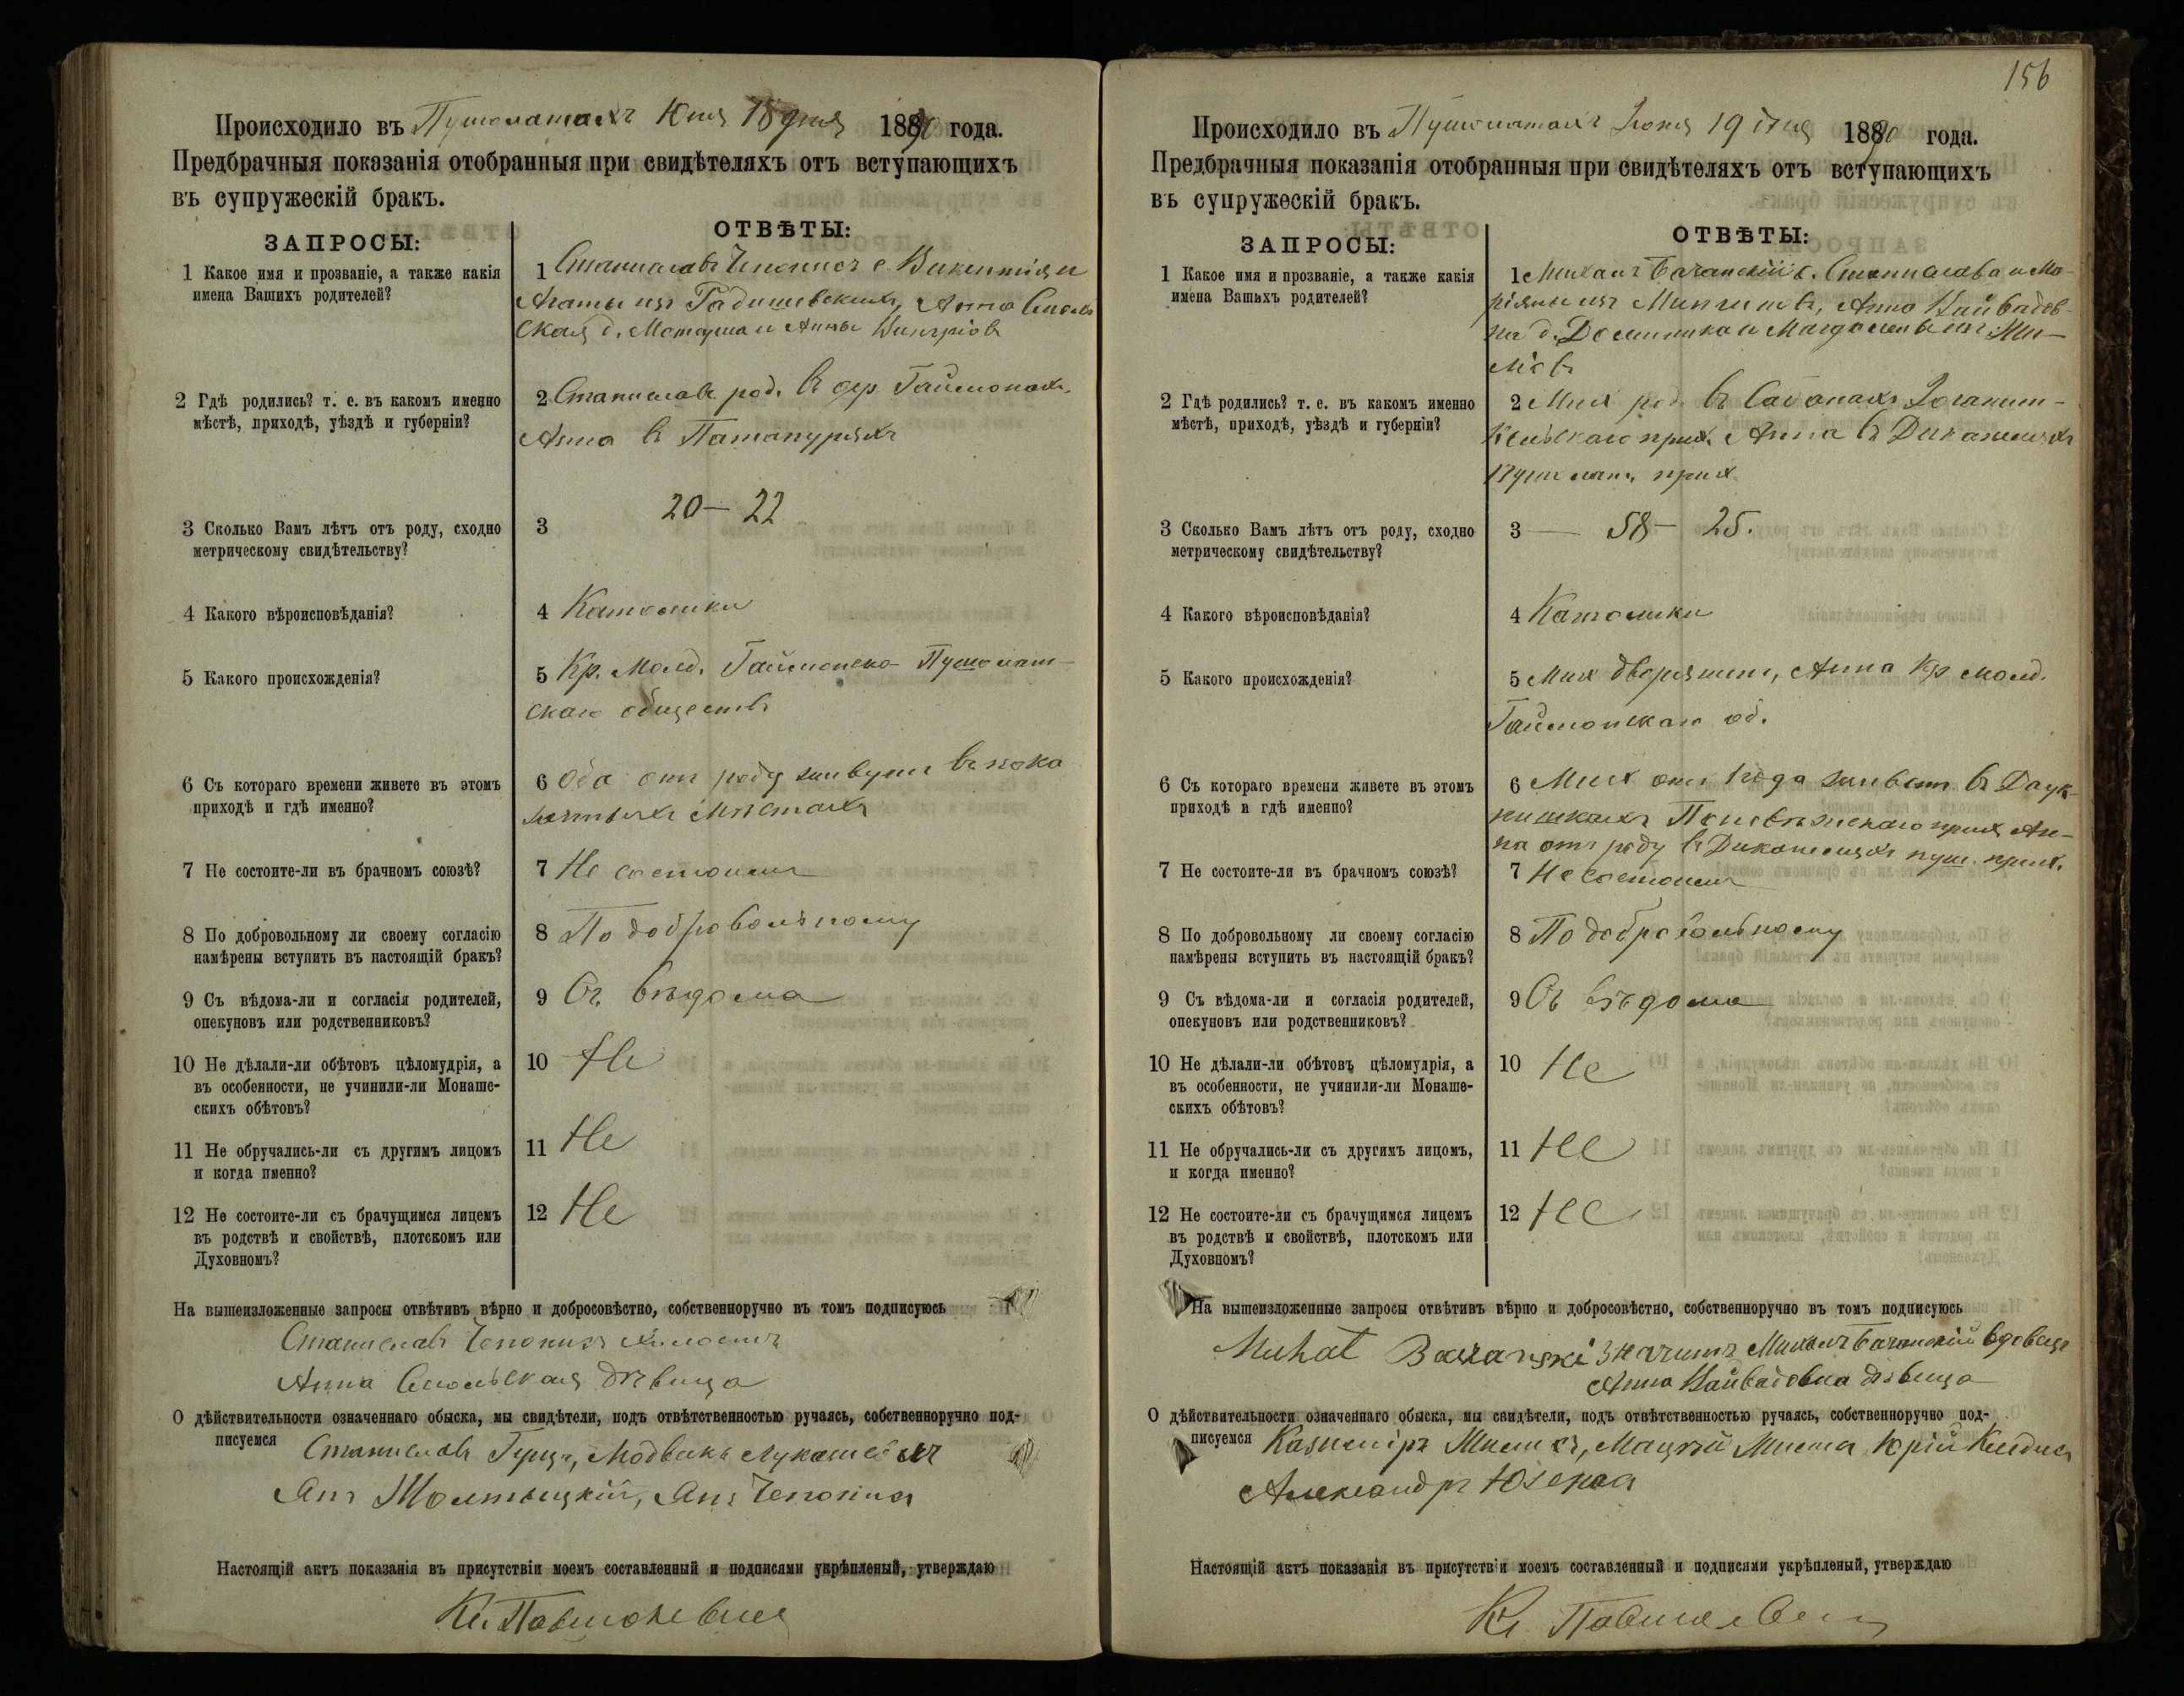 Происходило въ Пушолотахъ Юня 18 дня 1890 года.
Предбрачныя показанія отобранныя при свидѣтеляхъ отъ вступающихъ
въ супружескій бракъ.
ЗАПРОСЫ:
ОТВѢТЫ:
1 Какое имя и прозваніе, а также какія
имена Вашихъ родителей?
1 Станиславъ Чепонисъ с. Викентія и
Агаты изъ Гадишевскихъ, Анна Смоль
ская д. Матеуша и Анны
2 Гдѣ родились? т. е. въ какомъ именно
мѣстѣ, приходѣ, уѣздѣ и губерніи?
2 Станиславъ род. въ дер. Гаймонахъ,
Анна въ
3 Сколько Вамъ лѣтъ отъ роду, сходно
метрическому свидѣтельству?
3 20 — 22
4 Какого вѣроисповѣданія?
4 Католики
5 Какого происхожденія?
5 Кр. Гаймонско Пушолат-
скаго обществъ
6 Съ котораго времени живете въ этомъ
приходѣ и гдѣ именно?
6 Оба отъ роду живутъ въ пока
занныхъ мѣстахъ
7 Не состоите-ли въ брачномъ союзѣ?
7 Не состоимъ
8 По добровольному ли своему согласію
намѣрены вступить въ настоящій бракъ?
8 По добровольному
9 Съ вѣдома-ли и согласія родителей,
опекуновъ или родственниковъ?
9 Съ вѣдома
10 Не дѣлали-ли обѣтовъ цѣломудрія, а
въ особенности, не учинили-ли Монаше-
скихъ обѣтовъ?
10 Не
11 Не обручались-ли съ другимъ лицомъ
и когда именно?
11 Не
12 Не состоите-ли съ брачущимся лицемъ
въ родствѣ и свойствѣ, плотскомъ или
Духовномъ?
12 Не
На вышеизложенные запросы отвѣтивъ вѣрно и добросовѣстно, собственноручно въ томъ подписуюсь
Станиславъ Чепонисъ холостъ
Анна Смольская дѣвица
О дѣйствительности означеннаго обыска, мы свидѣтели, подъ отвѣтственностью ручаясь, собственноручно под-
писуемся Станиславъ
Янъ Янъ Чепонисъ
Настоящій актъ показанія въ присутствіи моемъ составленный и подписями укрѣпленый, утверждаю
156
Происходило въ Пушолотахъ Юня 19 дня 1890 года.
Предбрачныя показанія отобранныя при свидѣтеляхъ отъ вступающихъ
въ супружескій бракъ.
ЗАПРОСЫ:
ОТВѢТЫ:
1 Какое имя и прозваніе, а также какія
имена Вашихъ родителей?
1 Михалъ Бачанскій с. Станислава и Ма-
ріянны изъ Анна Найвадов-
на д. Доминика и Магдалены изъ Ми-
2 Гдѣ родились? т. е. въ какомъ именно
мѣстѣ, приходѣ, уѣздѣ и губерніи?
2 Мих род. въ
прих. Анна въ
Пушолат. прих.
3 Сколько Вамъ лѣтъ отъ роду, сходно
метрическому свидѣтельству?
3 — 58 — 25.
4 Какого вѣроисповѣданія?
4 Католики
5 Какого происхожденія?
5 Мих дворянинъ, Анна кр
Гаймонскаго об.
6 Съ котораго времени живете въ этомъ
приходѣ и гдѣ именно?
6 Мих отъ года живетъ въ
Поневѣжскаго прих Ан-
на отъ роду въ пуш. прих.
7 Не состоите-ли въ брачномъ союзѣ?
7 Не состоимъ
8 По добровольному ли своему согласію
намѣрены вступить въ настоящій бракъ?
8 По добровольному
9 Съ вѣдома-ли и согласія родителей,
опекуновъ или родственниковъ?
9 Съ вѣдома
10 Не дѣлали-ли обѣтовъ цѣломудрія, а
въ особенности, не учинили-ли Монаше-
скихъ обѣтовъ?
10 Не
11 Не обручались-ли съ другимъ лицомъ,
и когда именно?
11 Не
12 Не состоите-ли съ брачущимся лицемъ
въ родствѣ и свойствѣ, плотскомъ или
Духовномъ?
12 Не
На вышеизложенные запросы отвѣтивъ вѣрно и добросовѣстно, собственноручно въ томъ подписуюсь
Michał Baczański значитъ Михалъ Бачанскій вдовецъ
Анна Найвадовна дѣвица
О дѣйствительности означеннаго обыска, мы свидѣтели, подъ отвѣтственностью ручаясь, собственноручно под-
писуемся Казимiръ Юрій
Александръ
Настоящій актъ показанія въ присутствіи моемъ составленный и подписями укрѣпленый, утверждаю